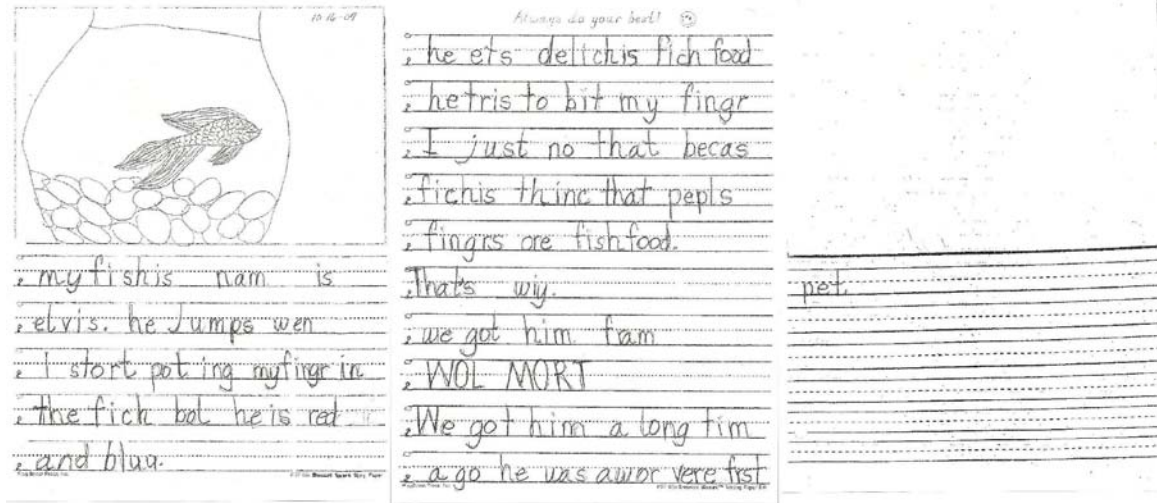 10-16-09
my fishis nam is
elvis. he Jumps wen
I stort pot ing myfingr in
the fich bol he is red
and bluu.
Always do your best!
he ets delichis fich food
hetris to bit my fingr
I just no that becas
fichis thinc that pepls
fingrs ore fishfood.
That's wiy.
we got him fram
WOL MORT
We got him a long tim
a go he was awor vere frst
pet.